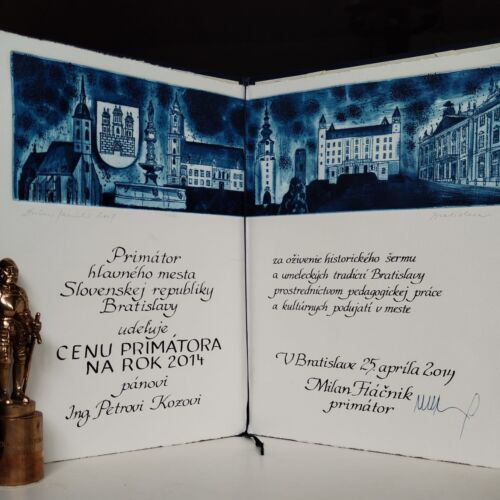 Primátor
hlavného mesta
Slovenskej republiky
Bratislavy
udeľuje
CENU PRIMÁTORA
NA ROK 2014
pánovi
Ing. Petrovi Kozovi
Bratislava
za oživenie historického šermu
a umeleckých tradícií Bratislavy
prostredníctvom pedagogickej práce
a kultúrnych podujatí v meste
V Bratislave 25. apríla 2014
Milan Ftáčnik
primátor